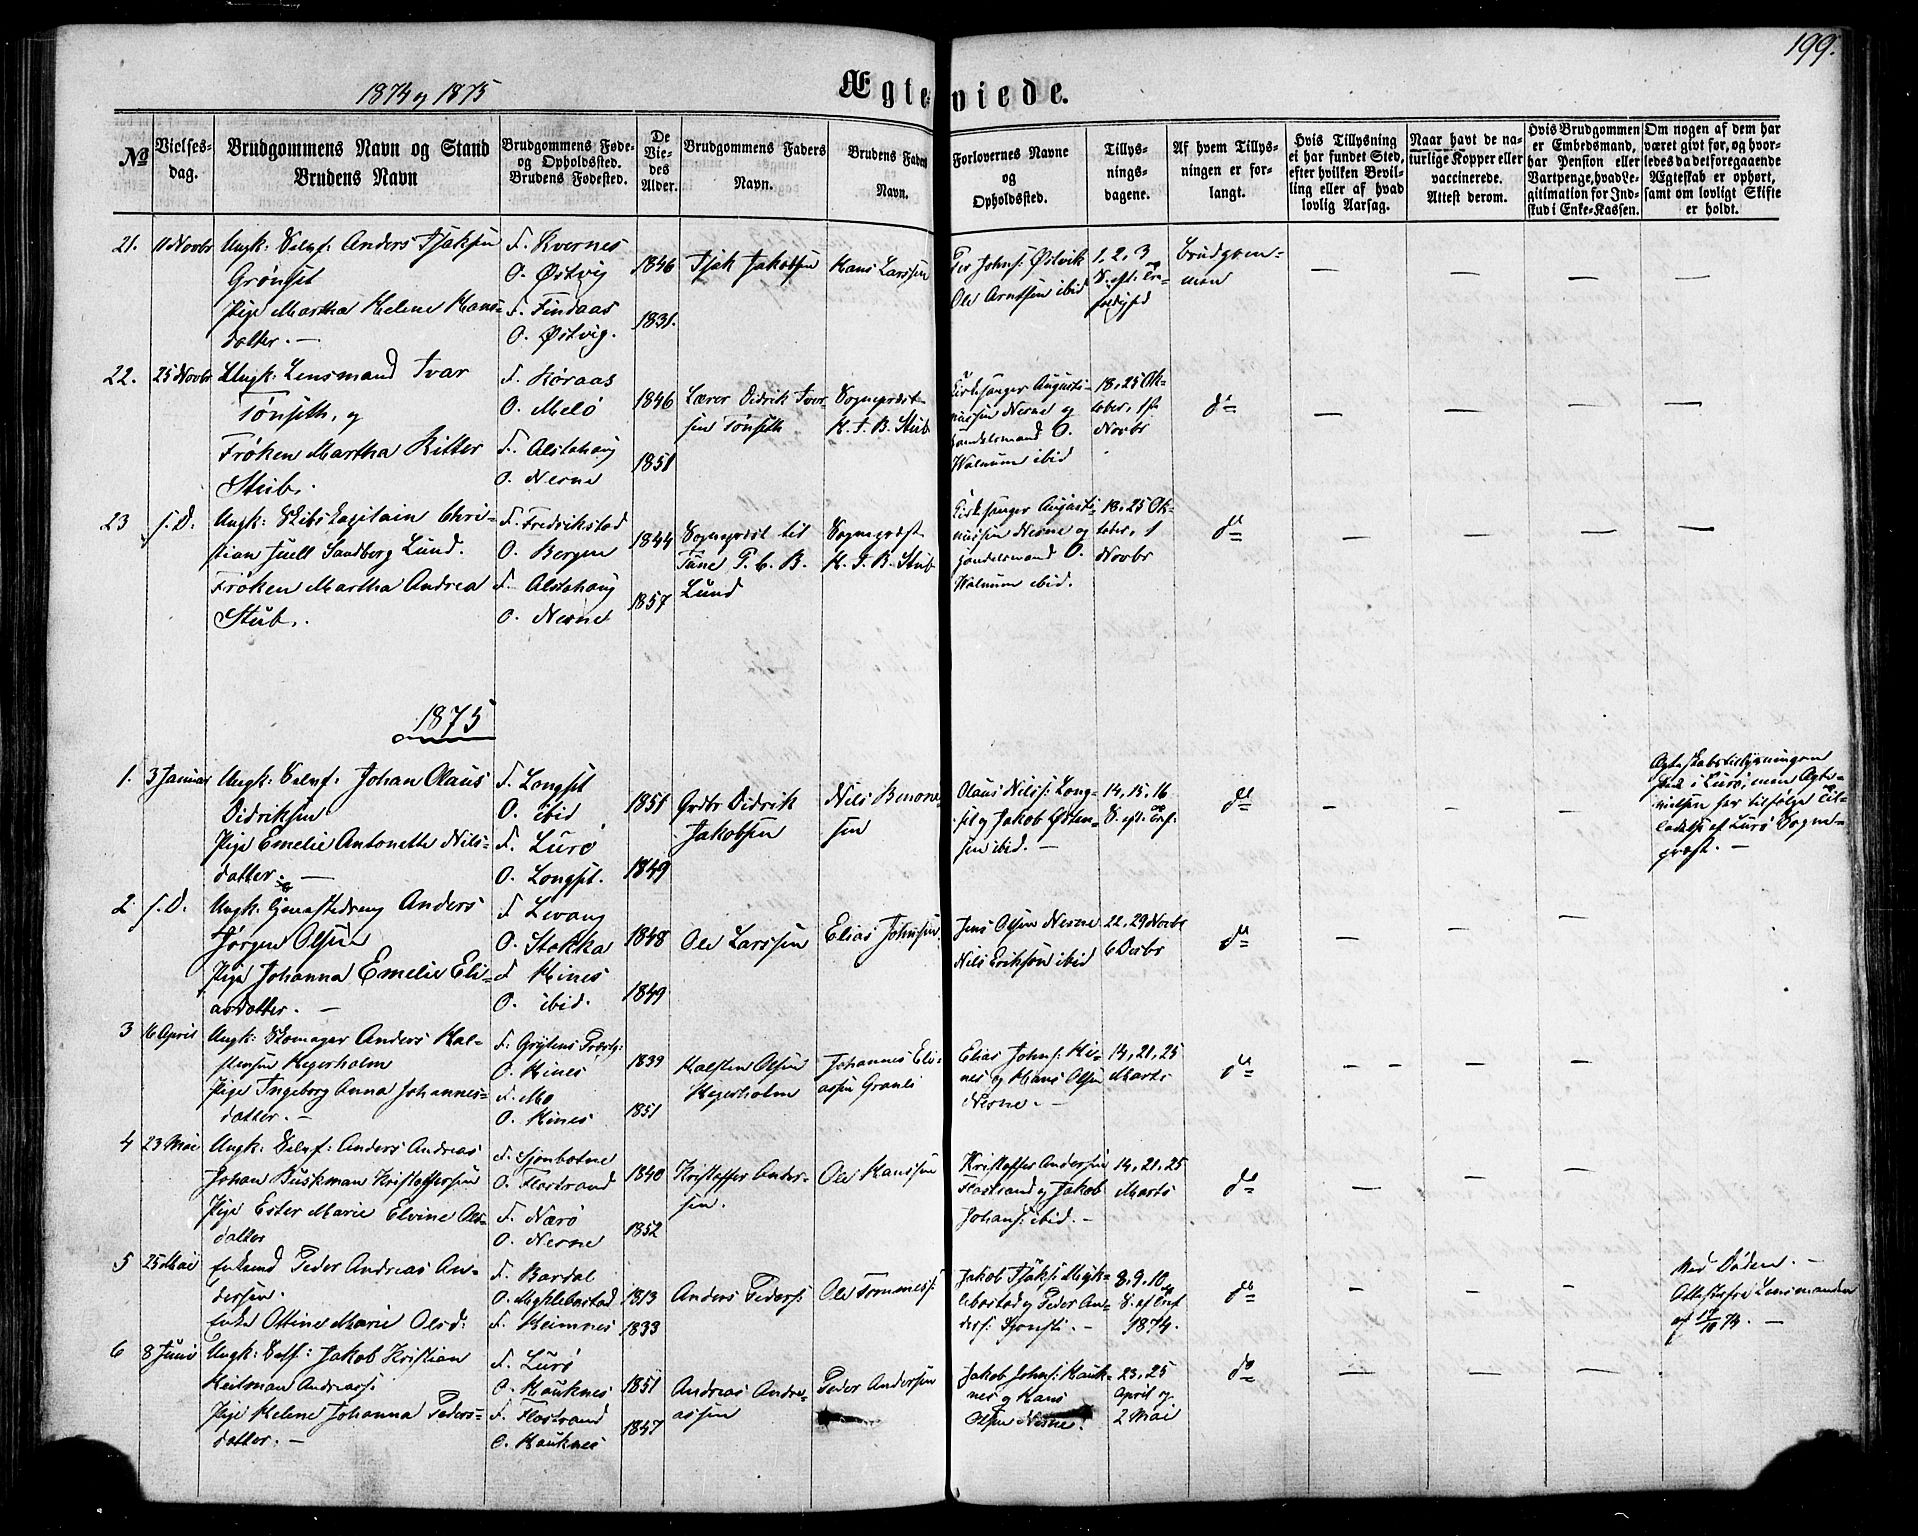 199.
1874 og 1875
Ægteviede.
No
Vielses-
dag.
Brudgommens Navn og Stand
Brudens Navn
Brudgommens Føde-
og Opholdssted.
Brudens Fødested.
De
Vie-
des
Alder.
Brudgommens Faders
Navn.
Brudens Faders
Navn.
Forlovernes Navne
og
Opholdssted.
Tillys-
nings-
dagene.
Af hvem Tillys-
ningen er for-
langt.
Hvis Tillysning
ei har fundet Sted,
efter hvilken Bevil-
ling eller af hvad
lovlig Aarsag.
Naar havt de na-
turlige Kopper eller
vaccinerede.
Attest derom.
Hvis Brudgommen
er Embedsmand,
har Pension eller
Vartpenge, hvad Le-
gitimation for Ind-
skud i Enke-Kassen.
Om nogen af dem har
været givt før, og hvor-
ledes da det foregaaende
Ægteskab er ophørt,
samt om lovligt Skifte
er holdt.
21.
11 Novbr
Ungk: Selvf: Anders Isaksen
Grønset
Pige Martha Helene Hans-
datter. —
F. Kvernes
O. Østvig
F. Findaas
O. Østvig.
1846
1831.
Isak Jakobsen
Hans Larssen
Per Johns: Østvik
Ole Arntsen ibid
1, 2, 3
S. eft.
Brudgom-
men
22.
25 Novbr
Ungk: Lensmand Ivar
Tønseth, og
Frøken Martha Ritter
Stub.
F. Røraas
O. Melø
F. Alstahaug
O. Nesne
1846
1851
Lærer Didrik Iver-
sen Tønseth
Sogneprest
H. F. B. Stub
Kirkesanger Augusti-
nussen Nesne og
Handelsmand O.
Walnum ibid
18, 25 Ok-
tober, 1ste
Novbr
do
23
s. D.
Ungk: Skibskapitain Chri-
stian Juell Sandberg Lund.
Frøken Martha Andrea
Stub.
F. Fredrikstad
O. Bergen
F. Alstahaug
O. Nesne
1844
1857
Sogneprest til
Tune P. C. B.
Lund
Sogneprest
H. F. B. Stub
Kirkesanger Augusti-
nussen Nesne og
Handelsmand O.
Walnum ibid.
18, 25 Ok-
tober, 1
Novbr
do
1875
1.
3 Januar
Ungk: Selvf: Johan Olaus
Didriksen
Pige Emelie Antonette Nils-
datter. —
F. Longset
O. ibid
F. Lurø
O. Longset.
1851
1849
Grdbr Didrik
Jakobsen
Nils Benone-
sen
Olaus Nilss: Long-
set og Jakob Østen-
sen ibid. —
14, 15, 16
S. eft. Tref.
do
Ægteskabstillysningen
skede i Lurø, men Ægte-
vielsen her tilfølge Til-
ladelse af Lurø Sogne-
præst. —
2
s. D.
Ungk. tjenestedreng Anders
Jørgen Olsen
Pige Johanna Emelie Eli-
asdatter. —
F. Levang
O. Stokka
F. Hines
O. ibid.
1848
1849
Ole Larssen
Elias Johnsen
Jens Olsen Nesne
Nils Eriksen ibid
22, 29 Novbr
6 Decbr
do
3
16 April
Ungk: Skomager Anders Hal-
stensen Hegerholm
Pige Ingeborg Anna Johannes-
datter. —
F. Grytens Præstg:
O. Hines
F. Mo
O. Hines
1839
1851
Halsten Olsen
Hegerholm
Johannes Eli-
assen Granli
Elias Johns: Hi-
nes og Hans Olsen
Nesne. —
14, 21, 25
Marts
do
4
23 Mai
Ungk: Selvf: Anders Andreas
Johan Buskman Kristoffersen
Pige Ester Marie Elvine Ols-
datter
F. Sjonbotne
O. Flostrand
F. Nærø
O. Nesne
1840
1852
Kristoffer Ander-
sen.
Ole Hanssen
Kristoffer Andersen
Flostrand og Jakob
Johans: ibid. —
14, 21, 25
Marts
do
5
25 Mai
Enkemd Peder Andreas An-
dersen.
Enke Ottine Marie Olsd:
F. Bardal
O. Myklebostad
F. Heimnes
1813
1833
Anders Peders:
Ole Tommess:
Jakob Isaks: Mykl-
lebostad og Peder An-
ders: Sjonsti. —
8, 9, 10
S. af Tref
1874.
do
Ved Døden. —
Attest fra Lensmanden
af 17/10 74. —
6
8 Juni
Ungk: Self: Jakob Kristian
Heitman Andreass:
Pige Helene Johanna Peders-
datter. —
F. Lurø
O. Hauknes
F. Flostrand
O. Hauknes
1851
1847
Andreas Andre-
assen
Peder Andersen
Jakob Johns: Hauk-
nes og Hans
Olsen Nesne.
23, 25
April og
2 Mai
do